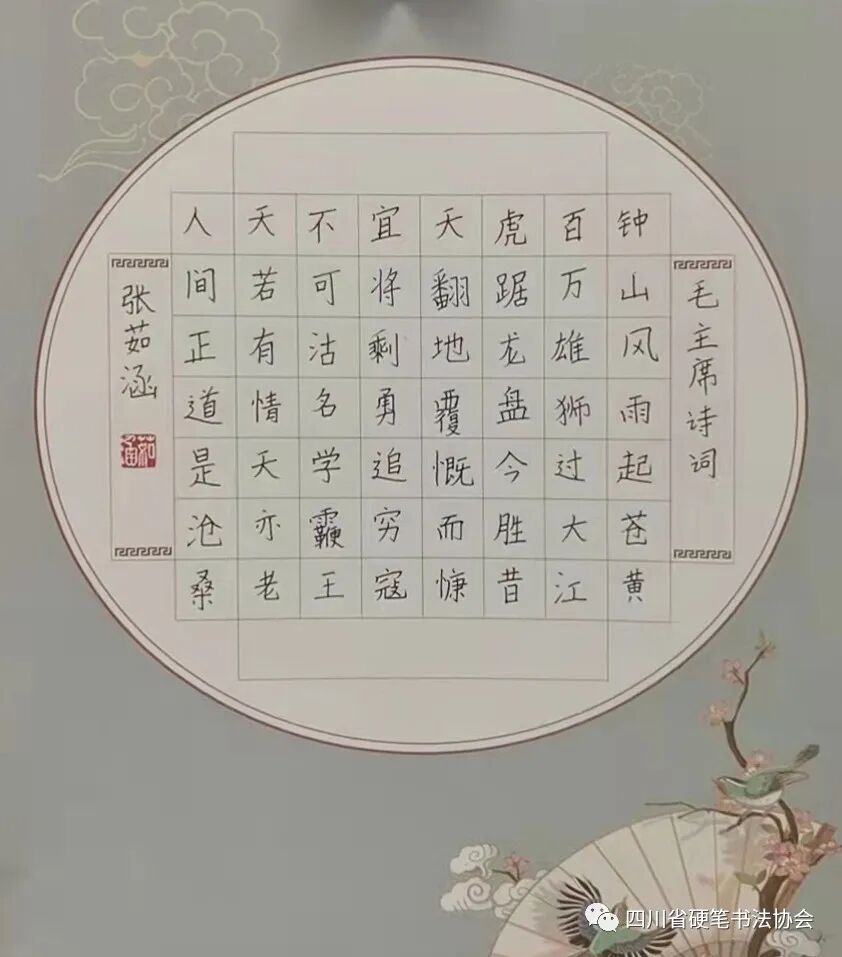 毛主席诗词
钟山风雨起苍黄
百万雄狮过大江
虎踞龙盘今胜昔
天翻地覆慨而慷
宜将剩勇追穷寇
不可沽名学霸王
天若有情天亦老
人间正道是沧桑
张茹涵
茹涵
四川省硬笔书法协会